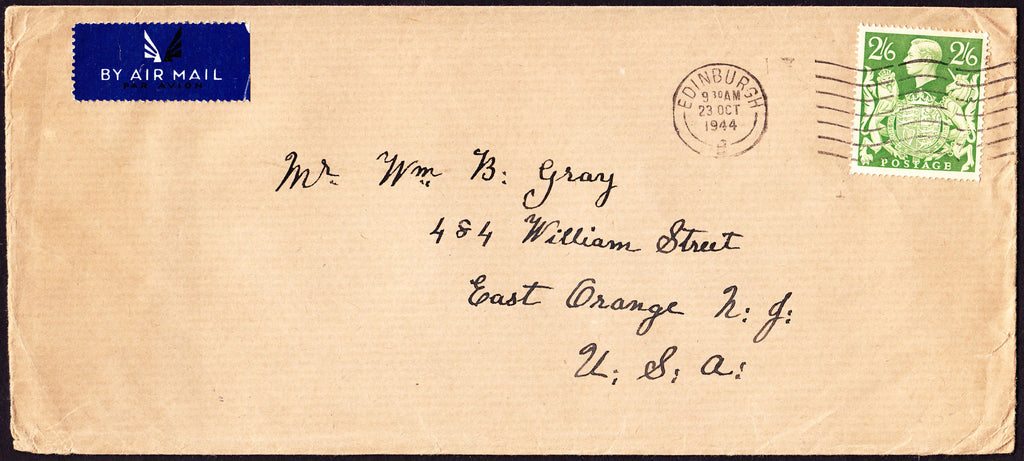 BY AIR MAIL
PAR AVION
EDINBURGH
9 30 AM
23 OCT
1944
2/6 2/6
POSTAGE
Mr. Wm. B. Gray
484 William Street
East Orange N. J.
U. S. A.